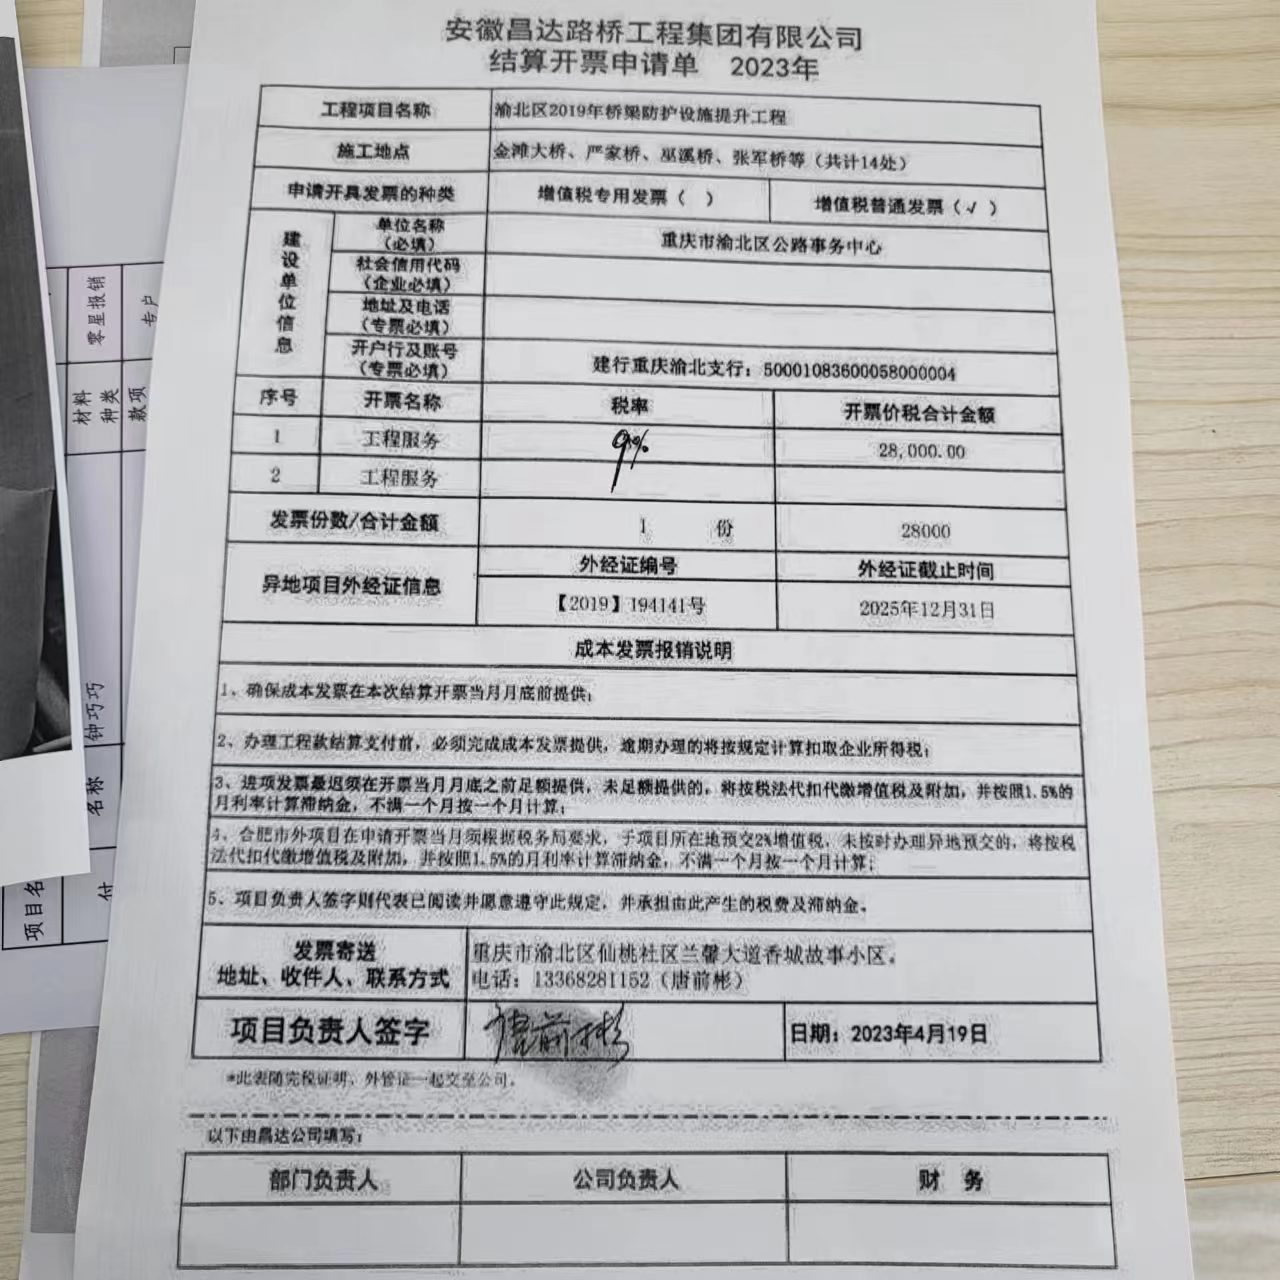 安徽昌达路桥工程集团有限公司
结算开票申请单 2023年
工程项目名称 渝北区2019年桥梁防护设施提升工程
施工地点 金滩大桥、严家桥、巫溪桥、张军桥等（共计14处）
申请开具发票的种类 增值税专用发票（ ） 增值税普通发票（√ ）
建设单位信息
单位名称
（必填）
重庆市渝北区公路事务中心
社会信用代码
（企业必填）
地址及电话
（专票必填）
开户行及账号
（专票必填）
建行重庆渝北支行：50001083600058000004
序号 开票名称 税率 开票价税合计金额
1 工程服务 9% 28,000.00
2 工程服务
发票份数/合计金额 1 份 28000
异地项目外经证信息
外经证编号 外经证截止时间
【2019】194141号 2025年12月31日
成本发票报销说明
1、确保成本发票在本次结算开票当月月底前提供；
2、办理工程款结算支付前，必须完成成本发票提供，逾期办理的将按规定计算扣取企业所得税；
3、进项发票最迟须在开票当月月底之前足额提供，未足额提供的，将按税法代扣代缴增值税及附加，并按照1.5%的
月利率计算滞纳金，不满一个月按一个月计算；
4、合肥市外项目在申请开票当月须根据税务局要求，于项目所在地预交2%增值税，未按时办理异地预交的，将按税
法代扣代缴增值税及附加，并按照1.5%的月利率计算滞纳金，不满一个月按一个月计算；
5、项目负责人签字则代表已阅读并愿意遵守此规定，并承担由此产生的税费及滞纳金。
发票寄送
地址、收件人、联系方式
重庆市渝北区仙桃社区兰馨大道香城故事小区。
电话：13368281152（唐前彬）
项目负责人签字 唐前彬 日期：2023年4月19日
*此表随完税证明、外管证一起交至公司。
以下由昌达公司填写：
部门负责人 公司负责人 财 务
零星报销
专户
材料
种类
款项
钟巧巧
名称
付
项目名